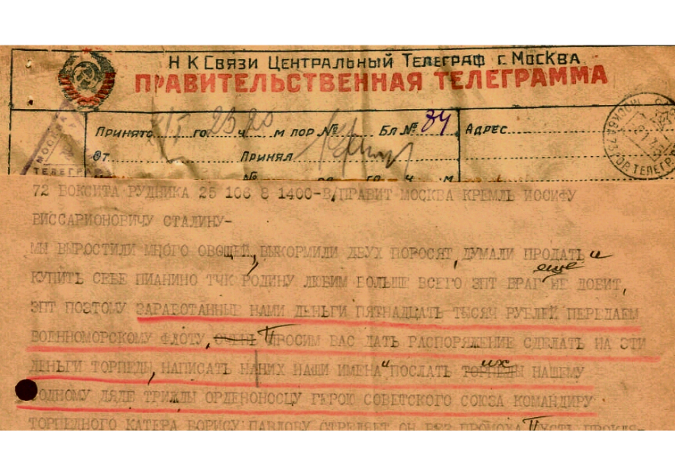 НК Связи Центральный Телеграф г. Москва
ПРАВИТЕЛЬСТВЕННАЯ ТЕЛЕГРАММА
Принято го 23 ч. м пор № Бл № 84 Адрес
От. Принял
72 БОКСИТА РУДНИКА 25 106 8 1400-В ПРАВИТ МОСКВА КРЕМЛЬ ИОСИФУ
ВИССАРИОНОВИЧУ СТАЛИНУ-
МЫ ВЫРОСТИЛИ МНОГО ОВОЩЕЙ, ВЫКОРМИЛИ ДВУХ ПОРОСЯТ, ДУМАЛИ ПРОДАТЬ и
КУПИТЬ СЕБЕ ПИАНИНО ТЧК РОДИНУ ЛЮБИМ БОЛЬШЕ ВСЕГО ЗПТ ВРАГ еще НЕ ДОБИТ,
ЗПТ ПОЭТОМУ ЗАРАБОТАННЫЕ НАМИ ДЕНЬГИ ПЯТНАДЦАТЬ ТЫСЯЧ РУБЛЕЙ ПЕРЕДАЕМ
ВОЕННОМОРСКОМУ ФЛОТУ, ПРОСИМ ВАС ДАТЬ РАСПОРЯЖЕНИЕ СДЕЛАТЬ НА ЭТИ
ДЕНЬГИ ТОРПЕДЫ, НАПИСАТЬ НА НИХ НАШИ ИМЕНА и ПОСЛАТЬ ТОРПЕДЫ их НАШЕМУ
РОДНОМУ ДЯДЕ ТРИЖДЫ ОРДЕНОНОСЦУ ГЕРОЮ СОВЕТСКОГО СОЮЗА КОМАНДИРУ
ТОРПЕДНОГО КАТЕРА БОРИСУ ПАВЛОВУ